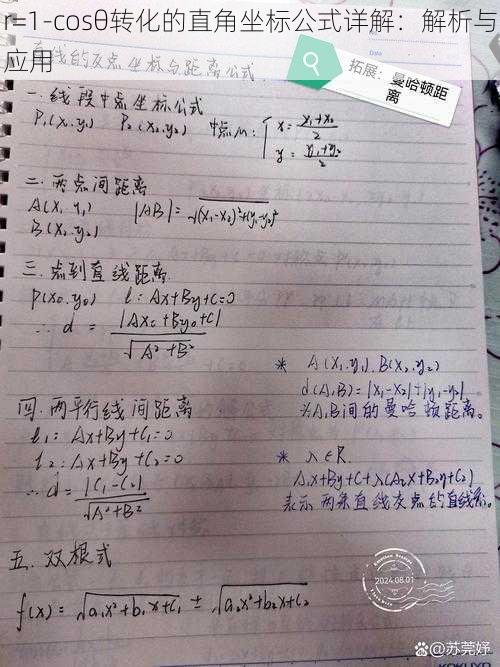 r=1-cosθ转化的直角坐标公式详解：解析与应用
直线的交点坐标与距离公式
拓展：曼哈顿距离
一.线段中点坐标公式
P₁(x₁.y₁) P₂(x₂,y₂) 中点M: { x = x₁+x₂/2
y = y₁+y₂/2
二.两点间距离
A(X₁, y₁) |AB| = √(X₁-X₂)²+(y₁-y₂)²
B(X₂, y₂)
三.点到直线距离.
P(x₀.y₀) l: Ax+By+C=0
∴ d = |Ax₀+By₀+C| / √A²+B²
* A(X₁.y₁). B(X₂.y₂)
d(A,B)=|X₁-X₂|+|y₁-y₂|
为A,B间的曼哈顿距离。
四.两平行线间距离
l₁: Ax+By+C₁=0
l₂: Ax+By+C₂=0
∴ d = |C₁-C₂| / √A²+B²
* λ∈R.
A₁x+B₁y+C₁+λ(A₂x+B₂y+C₂)
表示两条直线交点的直线系。
五.双根式
f(x) = √a₁x²+b₁x+c₁ ± √a₂x²+b₂x+c₂
2024.08.01
Bai du 百家号/苏莞妤